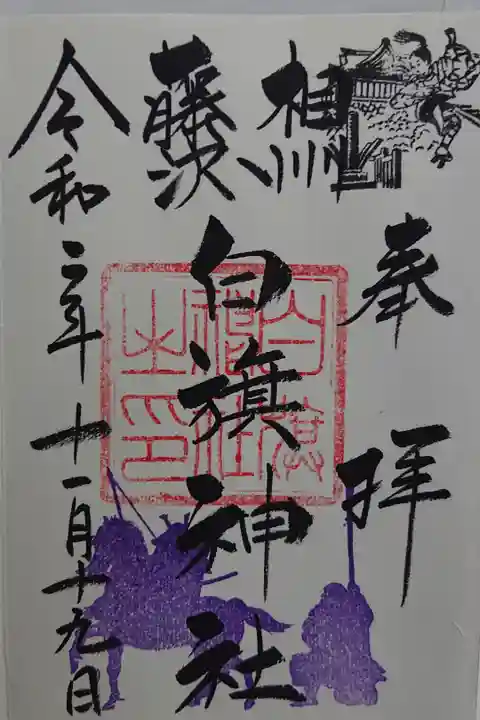 奉拝
相州
藤沢
白旗神社
令和二年十一月十九日
白旗神社之印